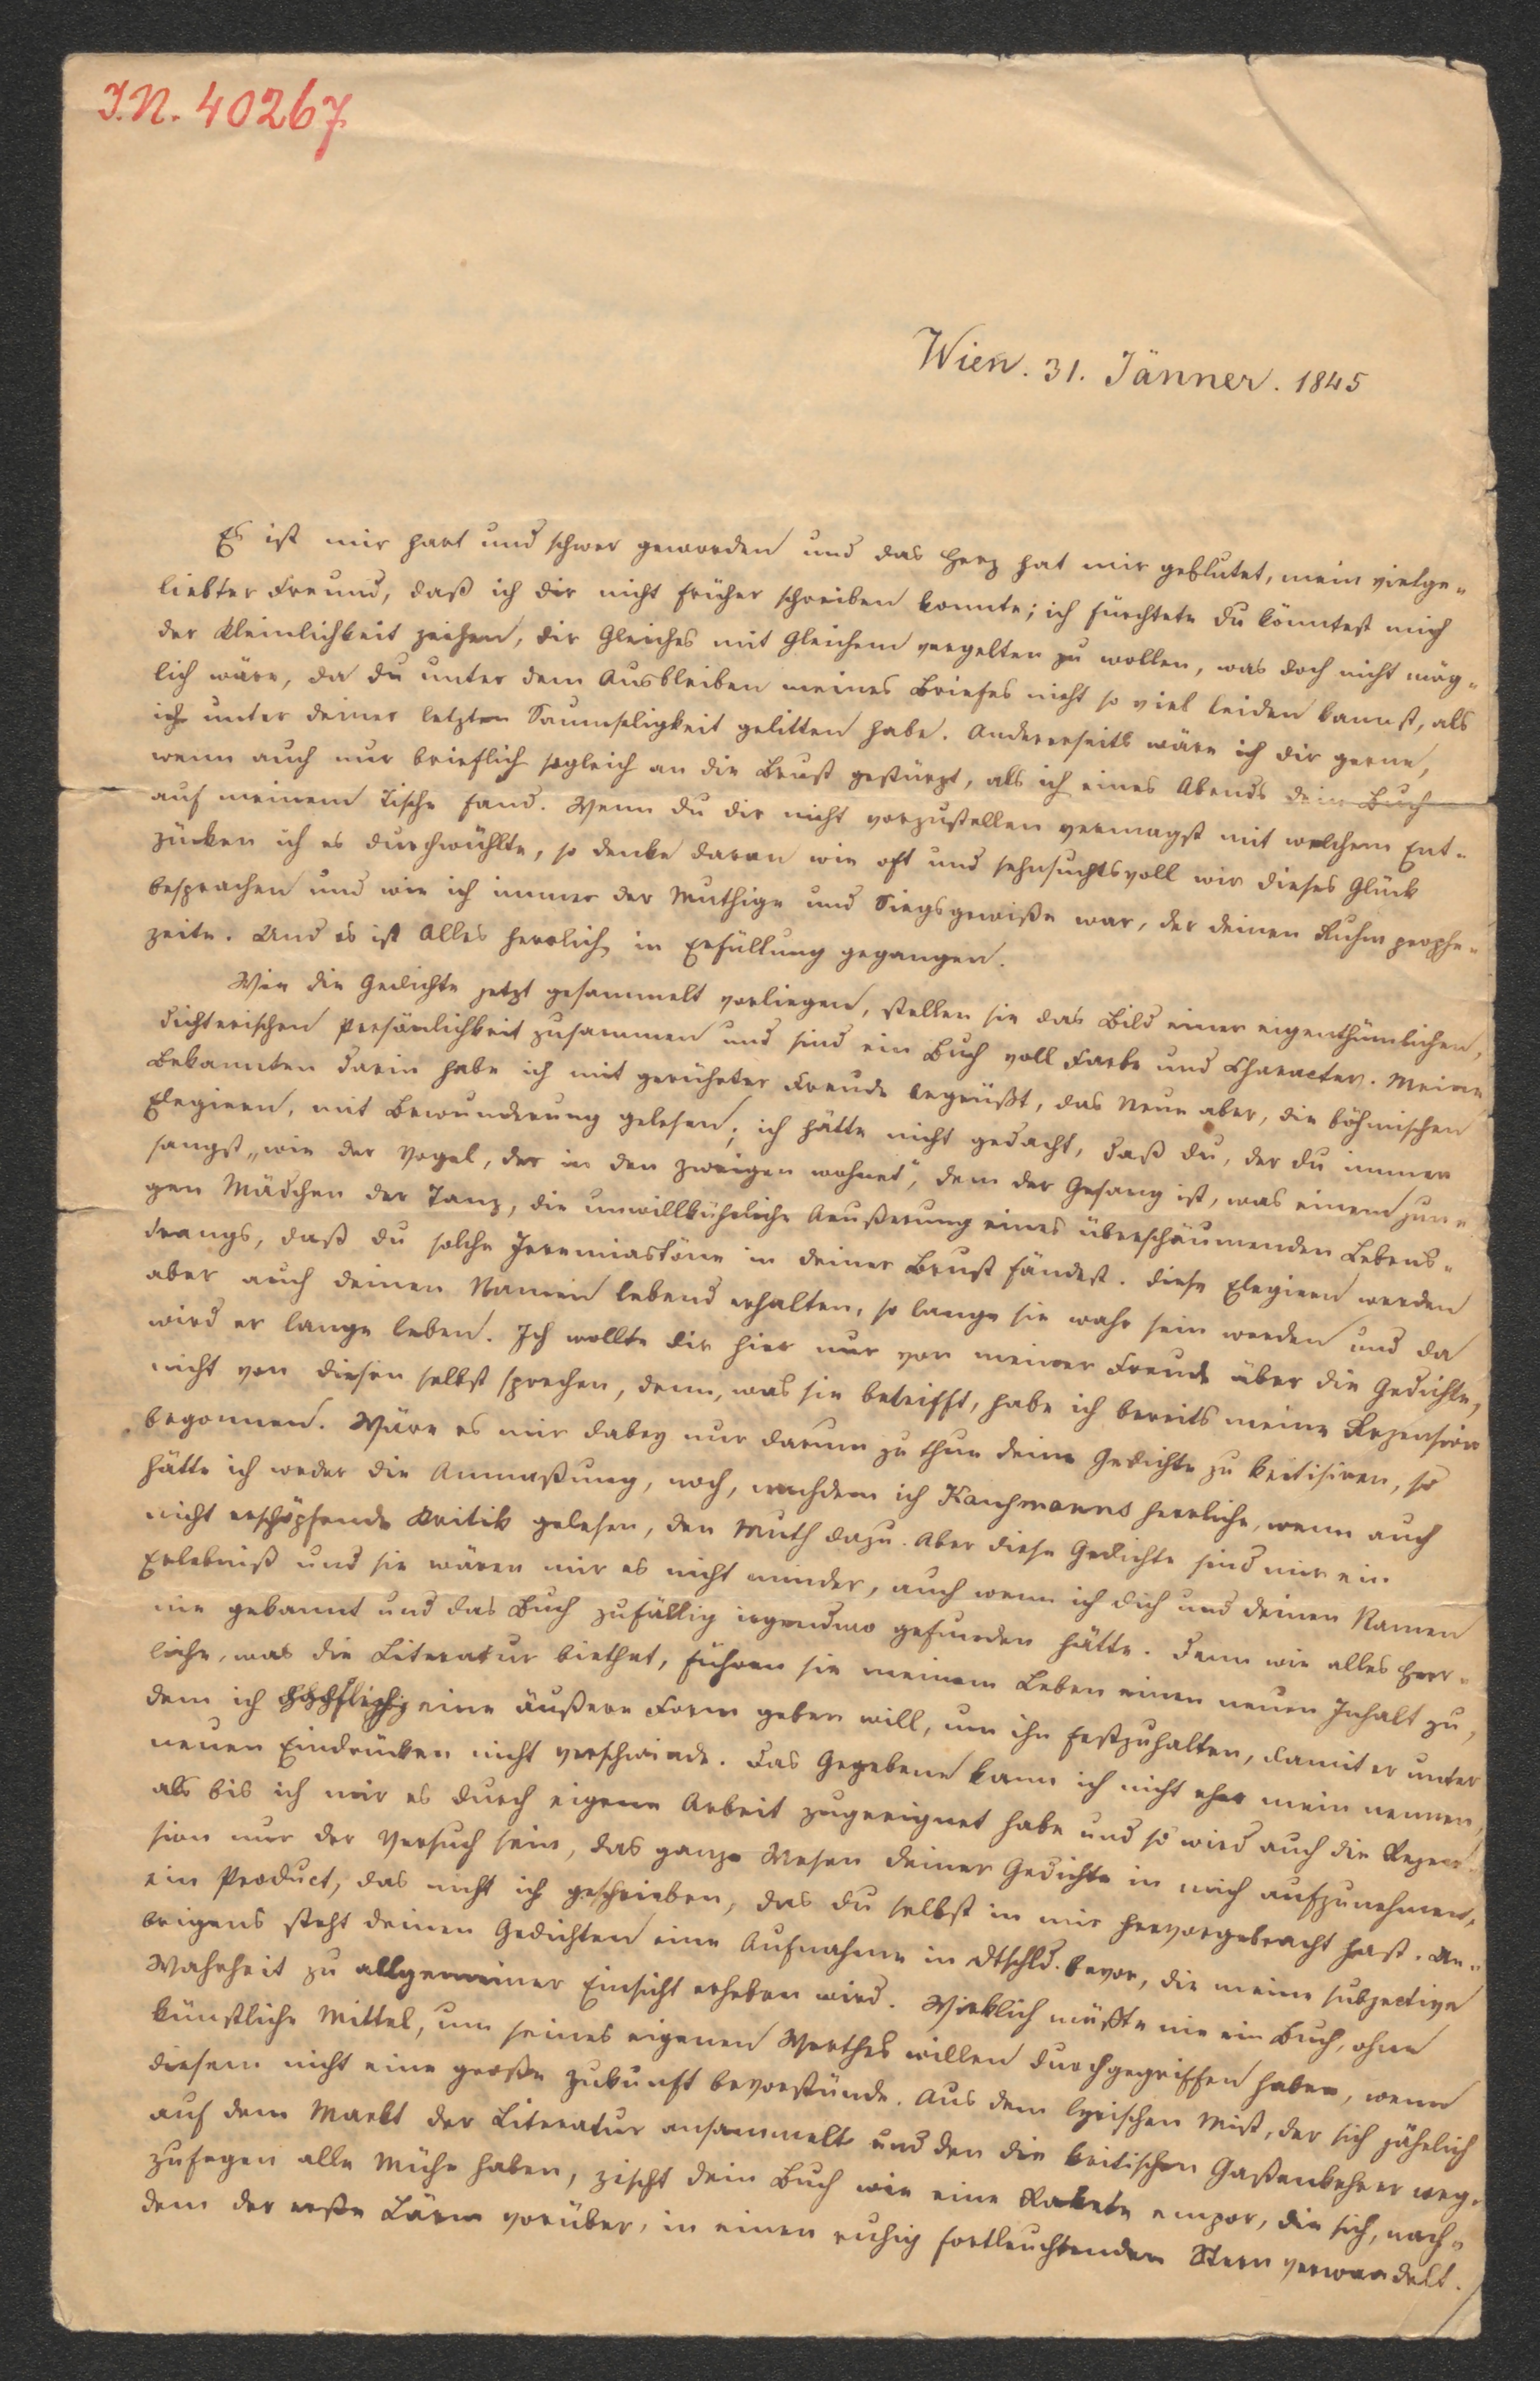 I.N. 40267
Wien. 31. Jänner. 1845
Es ist mir hart und schwer geworden und das Herz hat mir geblutet, mein vielge-
liebter Freund, daß ich dir nicht früher schreiben konnte; ich fürchtete du könntest mich
der Kleinlichkeit zeihen, dir Gleiches mit Gleichem vergelten zu wollen, was doch nicht mög-
lich wäre, da du unter dem Ausbleiben meines Briefes nicht so viel leiden kannst, als
ich unter deiner letzten Saumseligkeit gelitten habe. Andererseits wäre ich dir gerne,
wenn auch nur brieflich sogleich an die Brust gestürzt, als ich eines Abends dein Buch
auf meinem Tische fand. Wenn du dir nicht vorzustellen vermagst mit welchem Ent-
zücken ich es durchwühlte, so denke daran wie oft und sehnsuchtsvoll wir dieses Glück
besprachen und wie ich immer der Muthige und Siegsgewiße war, der deinen Ruhm prophe-
zeite. Und es ist Alles herrlich in Erfüllung gegangen.
Wie die Gedichte jetzt gesammelt vorliegen, stellen sie das Bild einer eigenthümlichen,
dichterischen Persönlichkeit zusammen und sind ein Buch voll Farbe und Character. Meine
Bekannten darin habe ich mit gerührter Freude begrüßt, das Neue aber, die böhmischen
Elegieen, mit Bewunderung gelesen; ich hätte nicht gedacht, daß du, der du immer
sangst „wie der Vogel, der in den Zweigen wohnet“, dem der Gesang ist, was einem jun-
gen Mädchen der Tanz, die unwillkührliche Aeußerung eines überschäumenden Lebens-
drangs, daß du solche Jeremiastöne in deiner Brust fändest. Diese Elegieen werden
aber auch deinen Namen lebend erhalten, so lange sie wahr sein werden und da
wird er lange leben. Ich wollte dir hier nur von meiner Freude über die Gedichte,
nicht von diesen selbst sprechen, denn, was sie betrifft, habe ich bereits meine Rezension
begonnen. Wäre es mir dabey nur darum zu thun deine Gedichte zu kritisiren, so
hätte ich weder die Anmaßung, noch, nachdem ich Kaufmanns herrliche, wenn auch
nicht erschöpfende Kritik gelesen, den Muth dazu. Aber diese Gedichte sind mir ein
Erlebniß und sie wären mir es nicht minder, auch wenn ich dich und deinen Namen
nie gekannt und das Buch zufällig irgendwo gefunden hätte. Denn wie alles Herr-
liche, was die Literatur biethet, führen sie meinem Leben einen neuen Inhalt zu,
dem ich eine äußere Form geben will, um ihn festzuhalten, damit er unter
neuen Eindrücken nicht verschwinde. Das Gegebene kann ich nicht eher mein nennen,
als bis ich mir es durch eigene Arbeit zugeeignet habe und so wird auch die Rezen-
sion nur der Versuch sein, das ganze Wesen deiner Gedichte in mich aufzunehmen,
ein Product, das nicht ich geschrieben, das du selbst in mir hervorgebracht hast. Ue-
brigens steht deinen Gedichten eine Aufnahme in Dtschld. bevor, die meine subjective
Wahrheit zu allgemeiner Einsicht erheben wird. Wirklich müßte nie ein Buch, ohne
künstliche Mittel, um seines eigenen Werthes willen durchgegriffen haben, wenn
diesem nicht eine große Zukunft bevorstünde. Aus dem lyrischen Mist, der sich jährlich
auf dem Markt der Literatur ansammelt und den die kritischen Gaßenkehrer weg-
zufegen alle Mühe haben, zischt dein Buch wie eine Rakete empor, die sich, nach-
dem der erste Lärm vorüber, in einen ruhig fortleuchtenden Stern verwandelt.